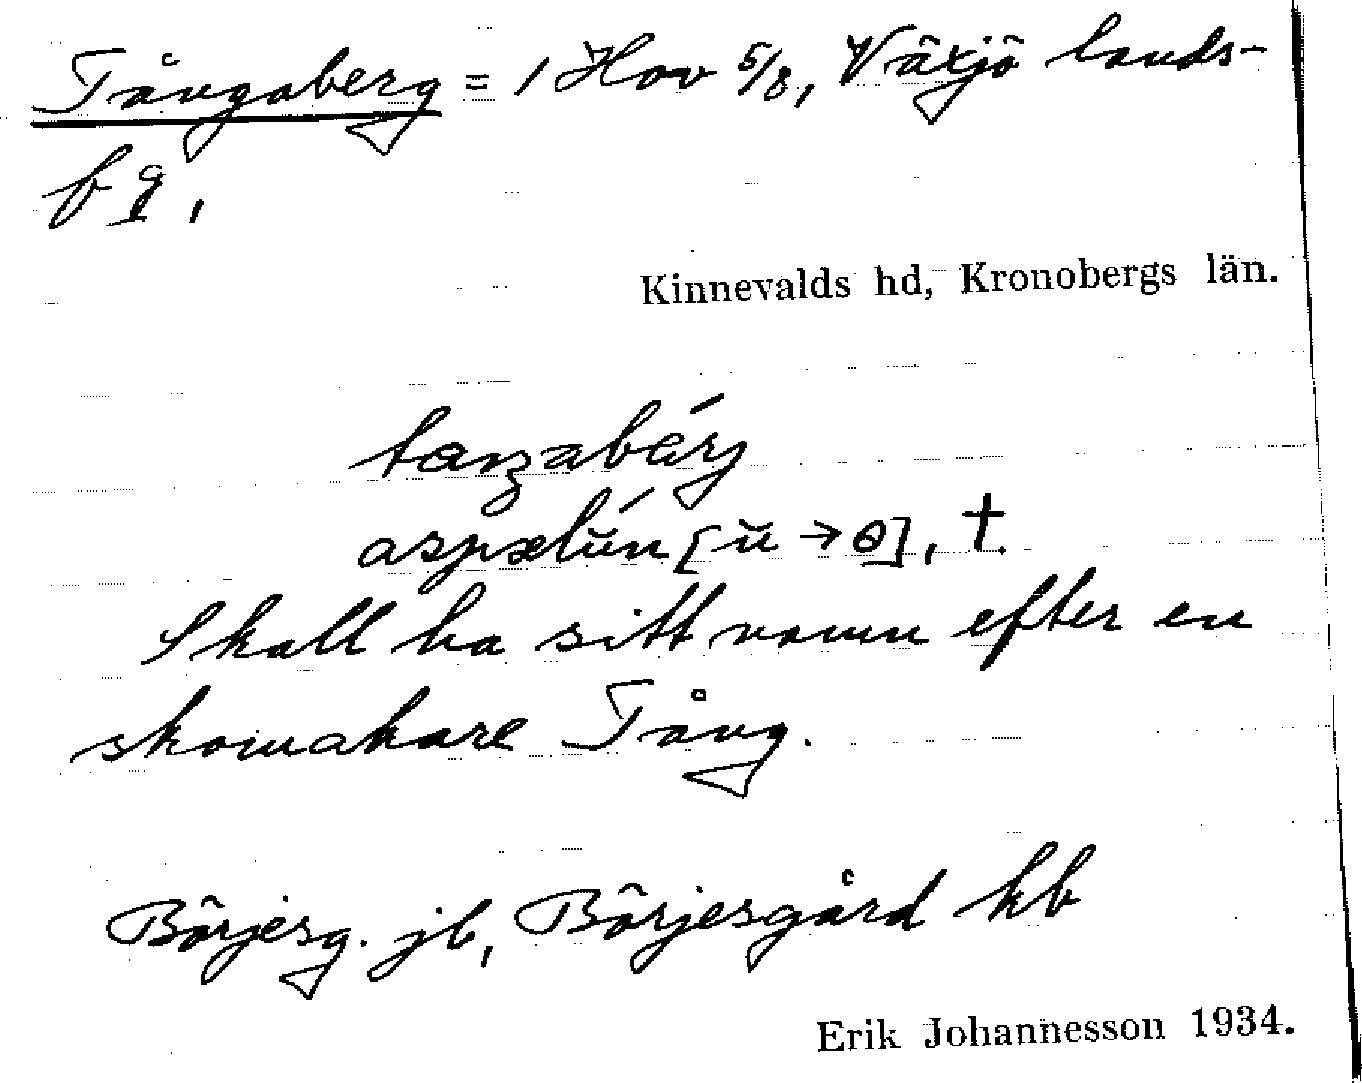 Tångaberg = 1 Hov 5/8, Växjö lands-
fg,
Kinnevalds hd, Kronobergs län.
taŋabærj
[ŭ → ɵ], †.
Skall ha sitt namn efter en
skomakare Tång.
Börjesg. jb, Börjesgård kb
Erik Johannesson 1934.